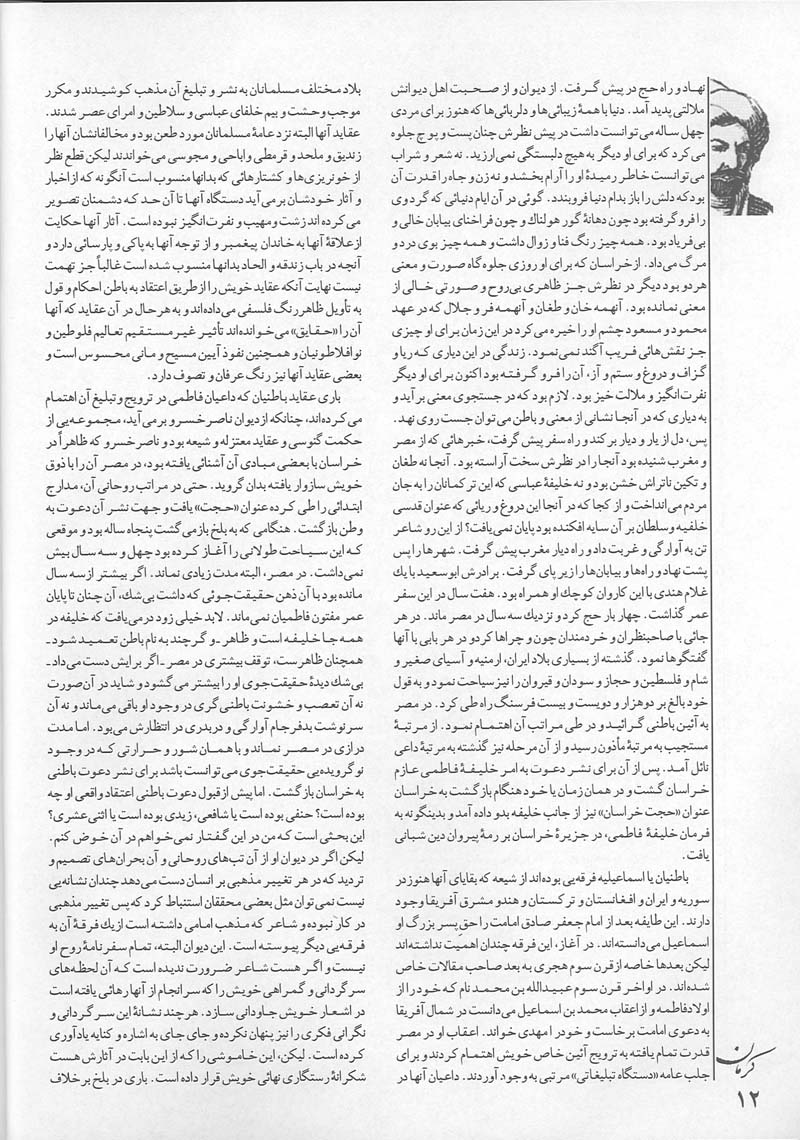 نهاد و راه حج در پیش گرفت. از دیوان و از صحبت اهل دیوانش
ملالتی پدید آمد. دنیا با همهٔ زیبائی‌ها و دلربائی‌ها که هنوز برای مردی
چهل ساله می‌توانست داشت در پیش نظرش چنان پست و پوچ جلوه
می‌کرد که برای او دیگر به هیچ دلبستگی نمی‌ارزید. نه شعر و شراب
می‌توانست خاطر رمیدهٔ او را آرام بخشد و نه زن و جاه را قدرت آن
بود که دلش را باز بدام دنیا فروبندد. گوئی در آن ایام دنیائی که گرد وی
را فرو گرفته بود چون دهانهٔ گور هولناك و چون فراخنای بیابان خالی و
بی‌فریاد بود. همه چیز رنگ فنا و زوال داشت و همه چیز بوی درد و
مرگ می‌داد. از خراسان که برای او روزی جلوه گاه صورت و معنی
هر دو بود دیگر در نظرش جز ظاهری بی‌روح و صورتی خالی از
معنی نمانده بود. آنهمه خان و طغان و آنهمه فر و جلال که در عهد
محمود و مسعود چشم او را خیره می‌کرد در این زمان برای او چیزی
جز نقش‌هائی فریب آگند نمی‌نمود. زندگی در این دیاری که ریا و
گزاف و دروغ و ستم و آز، آن را فرو گرفته بود اکنون برای او دیگر
نفرت‌انگیز و ملالت خیز بود. لازم بود که در جستجوی معنی برآید و
به دیاری که در آنجا نشانی از معنی و باطن می‌توان جست روی نهد.
پس، دل از یار و دیار برکند و راه سفر پیش گرفت، خبرهائی که از مصر
و مغرب شنیده بود آنجا را در نظرش سخت آراسته بود. آنجا نه طغان
و تکین ناتراش خشن بود و نه خلیفهٔ عباسی که این ترکمانان را به جان
مردم می‌انداخت و از کجا که در آنجا این دروغ و ریائی که عنوان قدسی
خلفیه و سلطان بر آن سایه افکنده بود پایان نمی‌یافت؟ از این رو شاعر
تن به آوارگی و غربت داد و راه دیار مغرب پیش گرفت. شهرها را پس
پشت نهاد و راه‌ها و بیابان‌ها را زیر پای گرفت. برادرش ابوسعید با یك
غلام هندی با این کاروان کوچك او همراه بود. هفت سال در این سفر
عمر گذاشت. چهار بار حج کرد و نزدیك سه سال در مصر ماند. در هر
جائی با صاحبنظران و خردمندان چون و چراها کرد و در هر بابی با آنها
گفتگوها نمود. گذشته از بسیاری بلاد ایران، ارمنیه و آسیای صغیر و
شام و فلسطین و حجاز و سودان و قیروان را نیز سیاحت نمود و به قول
خود بالغ بر دوهزار و دویست و بیست فرسنگ راه طی کرد. در مصر
به آئین باطنی گرائید و در طی مراتب آن اهتمام نمود. از مرتبهٔ
مستجیب به مرتبهٔ مأذون رسید و از آن مرحله نیز گذشته به مرتبهٔ داعی
نائل آمد. پس از آن برای نشر دعوت به امر خلیفهٔ فاطمی عازم
خراسان گشت و در همان زمان یا خود هنگام بازگشت به خراسان
عنوان «حجت خراسان» نیز از جانب خلیفه بدو داده آمد و بدینگونه به
فرمان خلیفهٔ فاطمی، در جزیرهٔ خراسان بر رمهٔ پیروان دین شبانی
یافت.
باطنیان یا اسماعیلیه فرقه‌یی بوده‌اند از شیعه که بقایای آنها هنوز در
سوریه و ایران و افغانستان و ترکستان و هند و مشرق آفریقا وجود
دارند. این طایفه بعد از امام جعفر صادق امامت را حق پسر بزرگ او
اسماعیل می‌دانسته‌اند. در آغاز، این فرقه چندان اهمیّت نداشته‌اند
لیکن بعدها خاصه از قرن سوم هجری به بعد صاحب مقالات خاص
شده‌اند. در اواخر قرن سوم عبیدالله بن محمد نام که خود را از
اولاد فاطمه و از اعقاب محمد بن اسماعیل می‌دانست در شمال آفریقا
به دعوی امامت برخاست و خود را مهدی خواند. اعقاب او در مصر
قدرت تمام یافته به ترویج آئین خاص خویش اهتمام کردند و برای
جلب عامه «دستگاه تبلیغاتی» مرتبی به وجود آوردند. داعیان آنها در
بلاد مختلف مسلمانان به نشر و تبلیغ آن مذهب کوشیدند و مکرر
موجب وحشت و بیم خلفای عباسی و سلاطین و امرای عصر شدند.
عقاید آنها البته نزد عامهٔ مسلمانان مورد طعن بود و مخالفانشان آنها را
زندیق و ملحد و قرمطی و اباحی و مجوسی می‌خواندند لیکن قطع نظر
از خونریزی‌ها و کشتارهائی که بدانها منسوب است آنگونه که از اخبار
و آثار خودشان برمی‌آید دستگاه آنها تا آن حد که دشمنان تصویر
می‌کرده‌اند زشت و مهیب و نفرت‌انگیز نبوده است. آثار آنها حکایت
از علاقهٔ آنها به خاندان پیغمبر و از توجه آنها به پاکی و پارسائی دارد و
آنچه در باب زندقه و الحاد بدانها منسوب شده است غالباً جز تهمت
نیست نهایت آنکه عقاید خویش را از طریق اعتقاد به باطن احکام و قول
به تأویل ظاهر رنگ فلسفی می‌داده‌اند و به هر حال در آن عقاید که آنها
آن را «حقایق» می‌خوانده‌اند تأثیر غیرمستقیم تعالیم فلوطین و
نوافلاطونیان و همچنین نفوذ آیین مسیح و مانی محسوس است و
بعضی عقاید آنها نیز رنگ عرفان و تصوف دارد.
باری عقاید باطنیان که داعیان فاطمی در ترویج و تبلیغ آن اهتمام
می‌کرده‌اند، چنانکه از دیوان ناصر خسرو برمی‌آید، مجموعه‌یی از
حکمت گنوسی و عقاید معتزله و شیعه بود و ناصر خسرو که ظاهراً در
خراسان با بعضی مبادی آن آشنائی یافته بود، در مصر آن را با ذوق
خویش سازوار یافته بدان گروید. حتی در مراتب روحانی آن، مدارج
ابتدائی را طی کرده عنوان «حجت» یافت و جهت نشر آن دعوت به
وطن بازگشت. هنگامی که به بلخ بازمی‌گشت پنجاه ساله بود و موقعی
که این سیاحت طولانی را آغاز کرده بود چهل و سه سال بیش
نمی‌داشت. در مصر، البته مدت زیادی نماند. اگر بیشتر از سه سال
مانده بود با آن ذهن حقیقت‌جوئی که داشت بی‌شك، آن چنان تا پایان
عمر مفتون فاطمیان نمی‌ماند. لابد خیلی زود درمی‌یافت که خلیفه در
همه جا خلیفه است و ظاهر ـ و گرچند به نام باطن تعمید شود ـ
همچنان ظاهرست، توقف بیشتری در مصر ـ اگر برایش دست می‌داد ـ
بی‌شك دیدهٔ حقیقت‌جوی او را بیشتر می‌گشود و شاید در آن‌صورت
نه آن تعصب و خشونت باطنی‌گری در وجود او باقی می‌ماند و نه آن
سرنوشت بدفرجام آوارگی و دربدری در انتظارش می‌بود. اما مدت
درازی در مصر نماند و با همان شور و حرارتی که در وجود
نوگرویده‌یی حقیقت‌جوی می‌توانست باشد برای نشر دعوت باطنی
به خراسان بازگشت. اما پیش از قبول دعوت باطنی اعتقاد واقعی او چه
بوده است؟ حنفی بوده است یا شافعی، زیدی بوده است یا اثنی عشری؟
این بحثی است که من در این گفتار نمی‌خواهم در آن خوض کنم.
لیکن اگر در دیوان او از آن تب‌های روحانی و آن بحران‌های تصمیم و
تردید که در هر تغییر مذهبی بر انسان دست می‌دهد چندان نشانه‌یی
نیست نمی‌توان مثل بعضی محققان استنباط کرد که پس تغییر مذهبی
در کار نبوده و شاعر که مذهب امامی داشته است از یك فرقهٔ آن به
فرقه‌یی دیگر پیوسته است. این دیوان البته، تمام سفرنامهٔ روح او
نیست و اگر هست شاعر ضرورت ندیده است که آن لحظه‌های
سرگردانی و گمراهی خویش را که سرانجام از آنها رهائی یافته است
در اشعار خویش جاودانی سازد. هر چند نشانهٔ این سرگردانی و
نگرانی فکری را نیز پنهان نکرده و جای جای به اشاره و کنایه یادآوری
کرده است. لیکن، این خاموشی را که از این بابت در آثارش هست
شکرانهٔ رستگاری نهائی خویش قرار داده است. باری در بلخ برخلاف
کرمان
۱۲